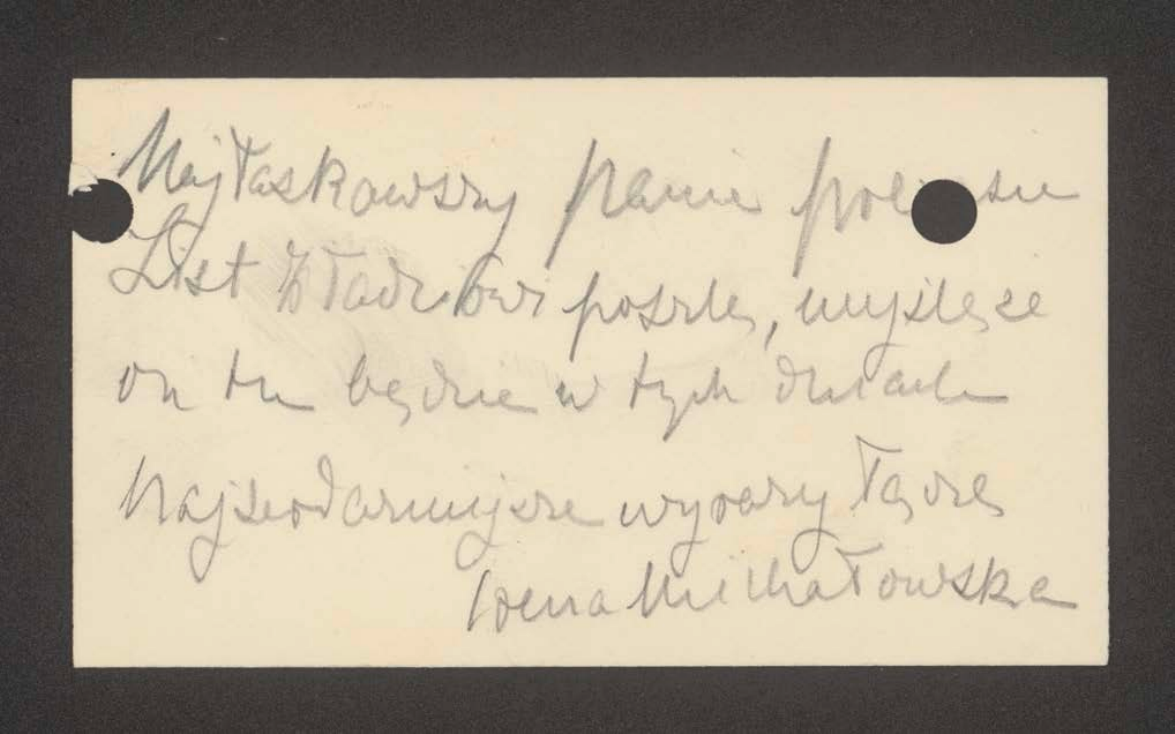 Najłaskawszy panie
List Władziowi poszlę, myślę że
on tu będzie w tych dniach
Najserdeczniejsze wyrazy łączę
Irena Michałowska